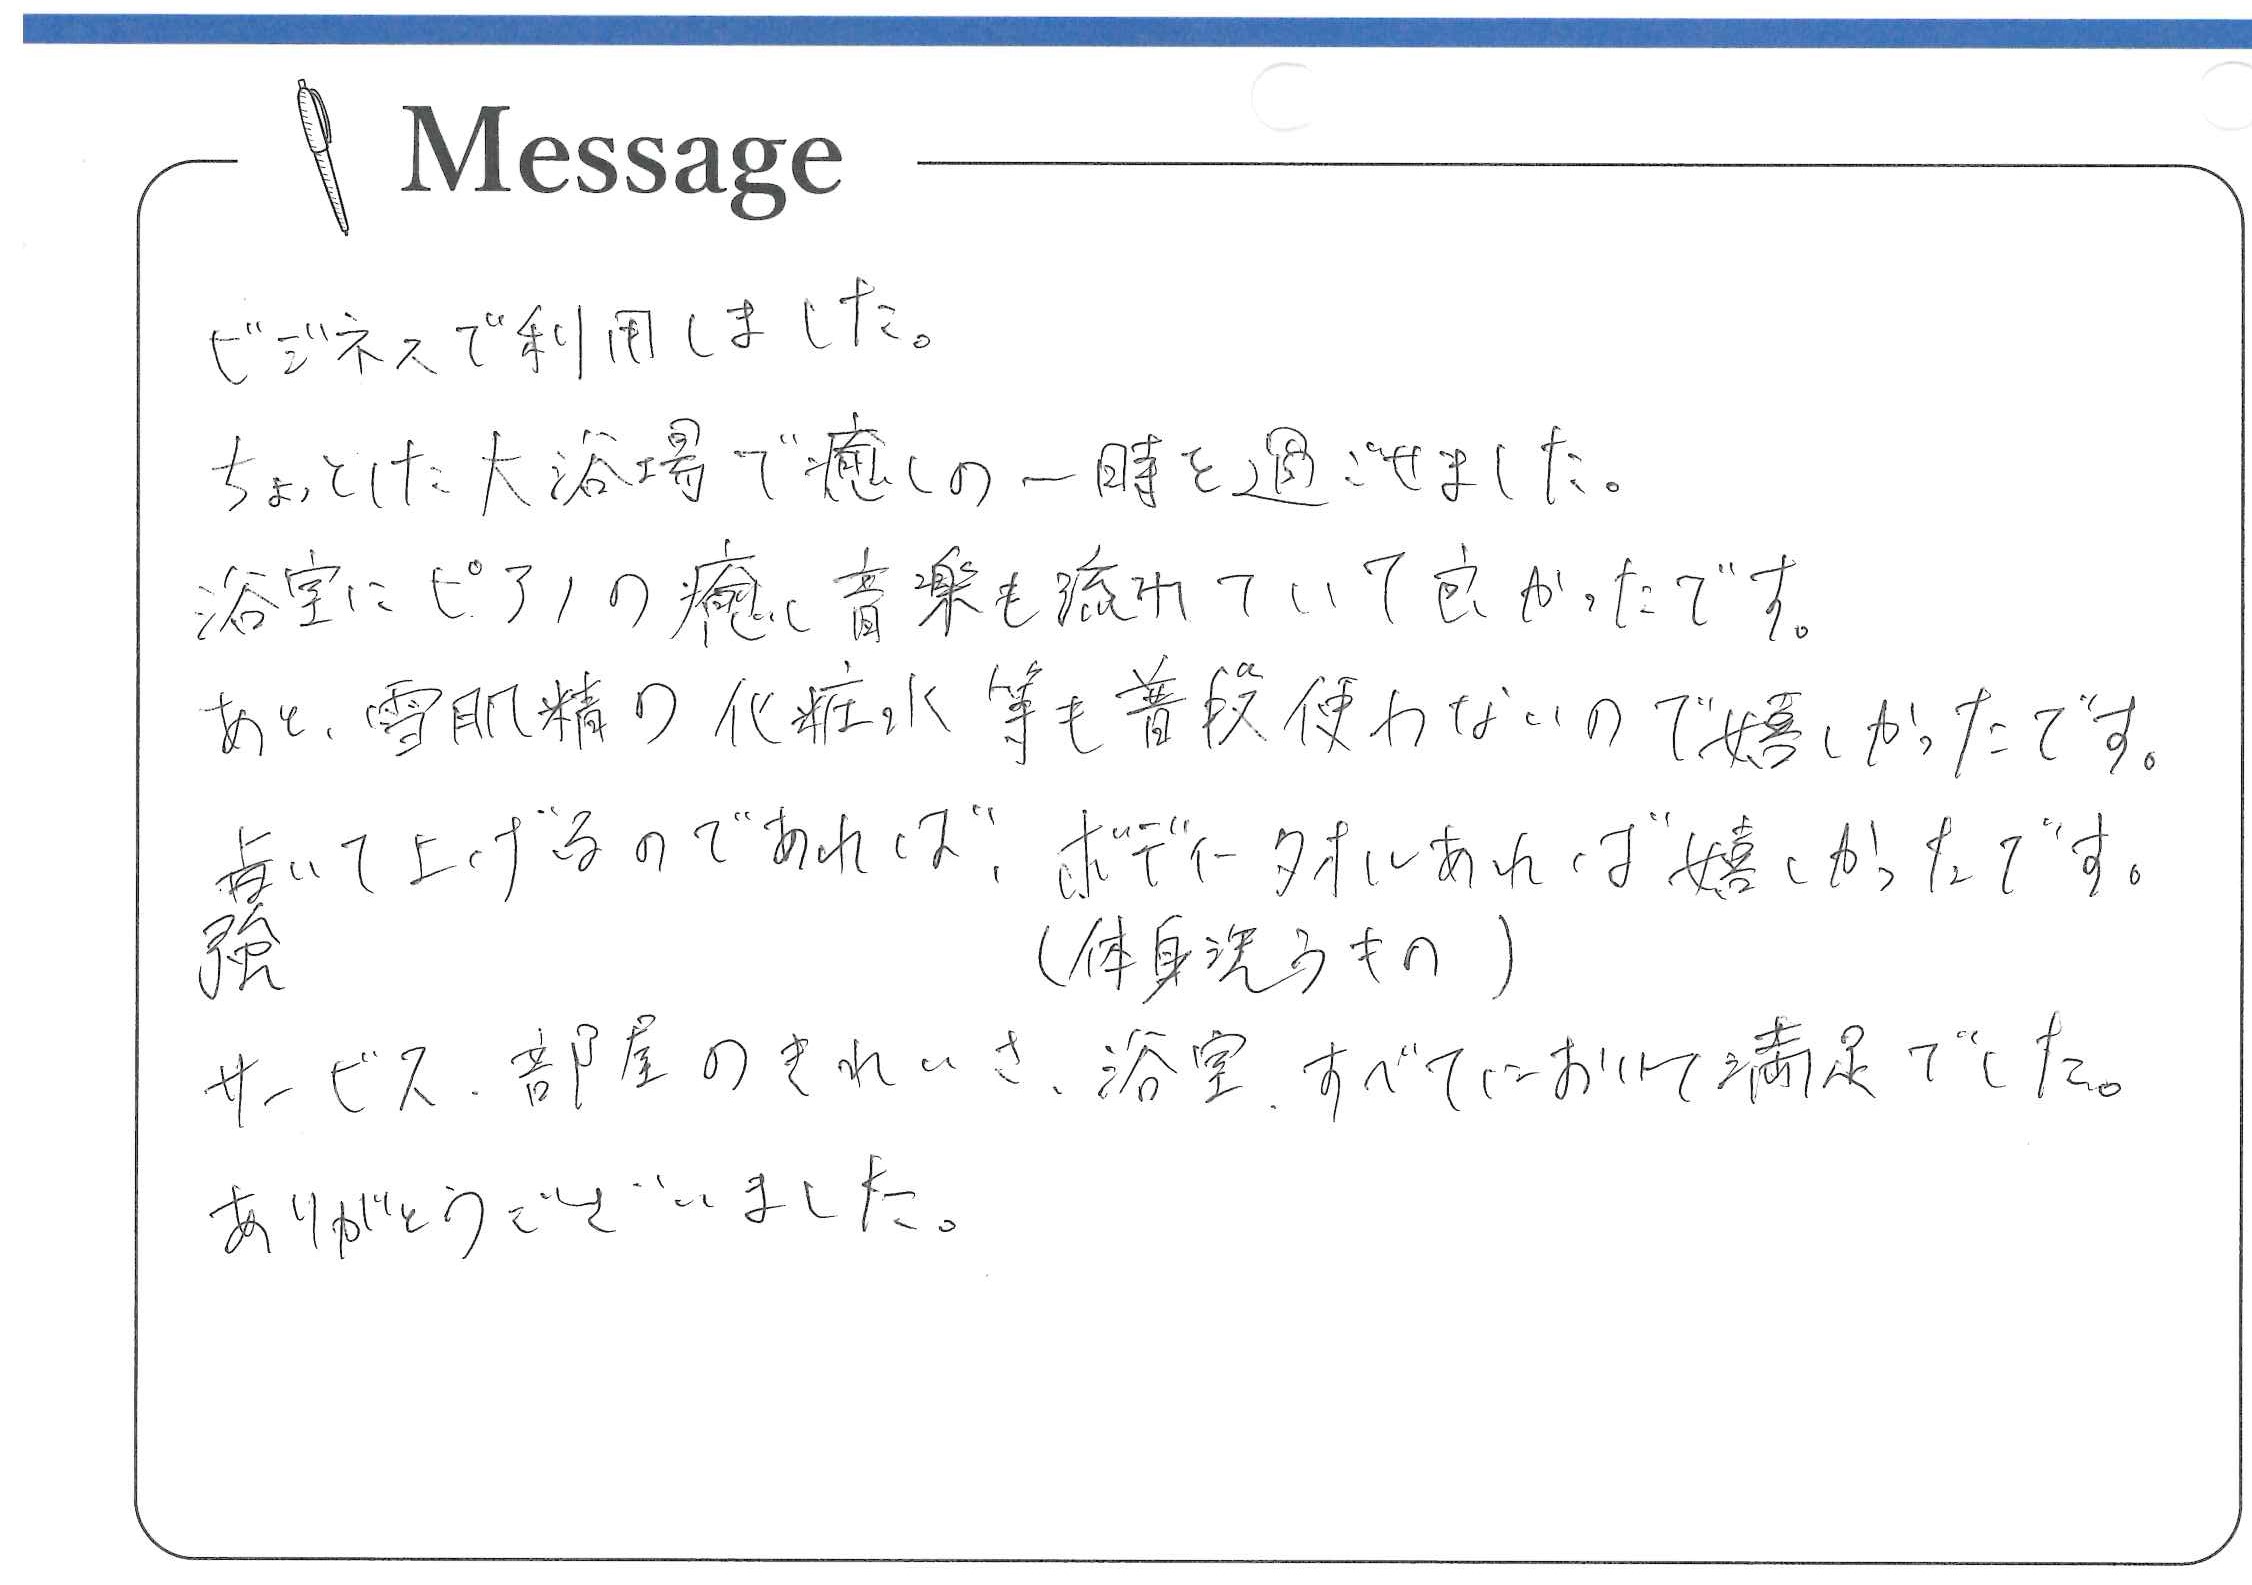 Message
ビジネスで利用しました。
ちょっとした大浴場で癒しの一時を過ごせました。
浴室にピアノの癒し音楽も流れていて良かったです。
あと、雪肌精の化粧水等も普段使わないので嬉しかったです。
いて上げるのであれば、ボディータオルあれば嬉しかったです。
強
(体身洗うもの)
サービス、部屋のきれいさ、浴室、すべてにおいて満足でした。
ありがとうございました。